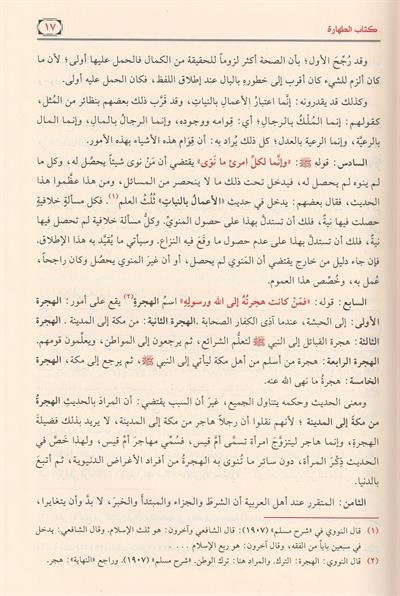 كتاب الطهارة
١٧
وقد رُجِّحَ الأول؛ بأن الصحة أكثر لزوماً للحقيقة من الكمال فالحمل عليها أولى؛ لأن ما
كان ألزم للشيء كان أقرب إلى خطورهِ بالبال عند إطلاق اللفظ، فكان الحمل عليه أولى.
وكذلك قد يقدرونه: إنَّما اعتبارُ الأعمالِ بالنيات، وقد قَرَّب ذلك بعضهم بنظائر من المُثل،
كقولهم: إنما المُلْكُ بالرجالِ؛ أي: قِوامه ووجوده، وإنما الرجالُ بالمالِ، وإنما المال
بالرعيَّة، وإنما الرعية بالعدل؛ كل ذلك يُراد به: أن قِوَام هذه الأشياء بهذه الأمور.
السادس: قوله ﷺ: «وإنَّما لكلِّ امرئٍ ما نَوَى» يقتضي أن مَنْ نوى شيئاً يحصُل له، وكل ما
لم ينوه لم يحصل له، فيدخل تحت ذلك ما لا ينحصر من المسائل، ومن هذا عظَّموا هذا
الحديث، فقال بعضهم: يدخل في حديث «الأعمالُ بالنيات» ثُلُثُ العلم(١). فكل مسألةٍ خلافيةٍ
حصلت فيها نيةٌ، فلك أن تستدلَّ بهذا على حصول المنويِّ. وكلُّ مسألة خلافية لم تحصل فيها
نيةٌ، فلك أن تستدلَّ بهذا على عدم حصول ما وقعَ فيه النزاع. وسيأتي ما يُقيَّد به هذا الإطلاق.
فإن جاء دليل من خارج يقتضي أن المَنوي لم يحصل، أو أن غيرَ المنوي يحصل وكان راجحاً،
عُمل به، وخُصِّص هذا العموم.
السابع: قوله: «فمَنْ كانت هجرتُهُ إلى الله ورسولهِ» اسمُ الهجرةِ(٢) يقع على أمور: الهجرة
الأولى: إلى الحبشة، عندما آذى الكفار الصحابة. الهجرة الثانية: من مكة إلى المدينة. الهجرة
الثالثة: هجرة القبائل إلى النبي ﷺ لتعلُّم الشرائع، ثم يرجعون إلى المواطن، ويعلِّمون قومهم.
الهجرة الرابعة: هجرة من أسلم من أهل مكة ليأتي إلى النبي ﷺ، ثم يرجع إلى مكة، الهجرة
الخامسة: هجرةُ ما نهى الله عنه.
ومعنى الحديث وحكمه يتناول الجميع، غيرَ أن السبب يقتضي: أن المرادَ بالحديثِ الهجرةُ
من مكة إلى المدينة؛ لأنهم نقلوا أن رجلاً هاجر من مكة إلى المدينة، لا يريد بذلك فضيلةَ
الهجرةِ، وإنما هاجر ليتزوَّج امرأة تسمَّى أمَّ قيس، فسُمِّي مهاجرَ أمِّ قيس، ولهذا خَصَّ في
الحديث ذِكرَ المرأة، دون سائر ما تُنوى به الهجرةُ من أفراد الأغراض الدنيوية، ثم أتبعَ
بالدنيا.
الثامن: المتقرر عند أهل العربية أن الشرطَ والجزاء والمبتدأ والخبرَ، لا بدَّ وأن يتغايرا،
(١) قال النووي في «شرح مسلم» (١٩٠٧): قال الشافعي وآخرون: هو ثلث الإسلام. وقال الشافعي: يدخل
في سبعين باباً من الفقه، وقال آخرون: هو ربع الإسلام ....
(٢) قال النووي: الهجرة: الترك. والمراد هنا: ترك الوطن. «شرح مسلم» (١٩٠٧). وراجع «النهاية»: هجر.